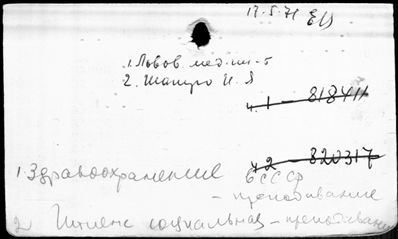 17.5.71
1. Львов. мед. ин-т
2. Шапиро И. Я
ч. 1 — 818411
ч. 2 — 820317
1. Здравоохранение
в СССР
— преподавание
2 Гигиена социальная — преподавание